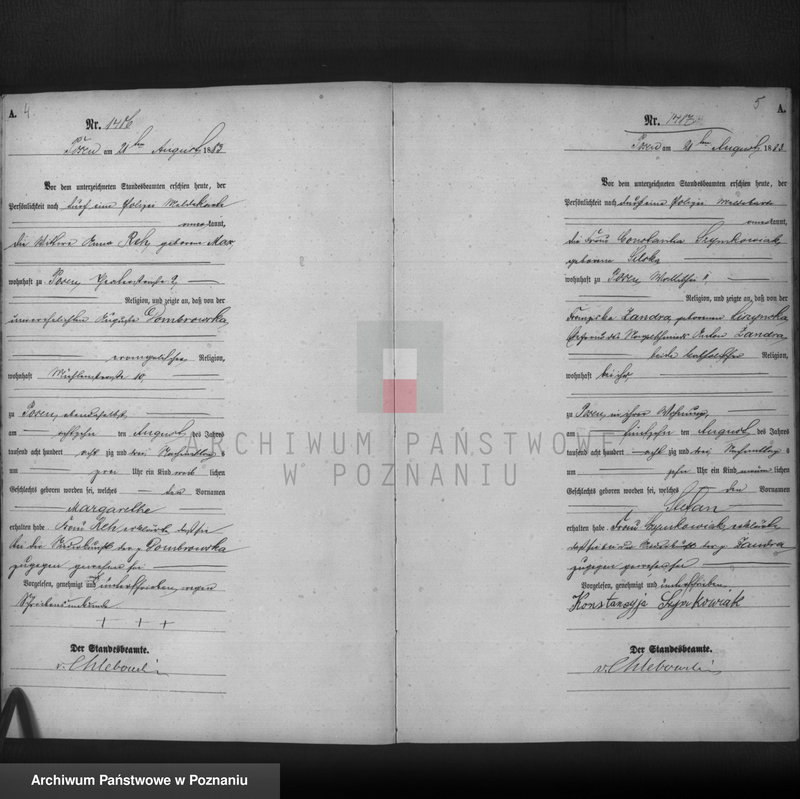 A. 4
Nr. 1416
Posen am 21ten August 1883
Vor dem unterzeichneten Standesbeamten erschien heute, der
Persönlichkeit nach durch eine Polizei Meldekarte
anerkannt,
die Wittwe Anna Reh, geborene
wohnhaft zu Posen, 2,
Religion, und zeigte an, daß von der
unverehelichten Auguste Dombrowska,
evangelischer Religion,
wohnhaft Mühlenstraße 10,
zu Posen, ebendaselbst,
am achtzehn ten August des Jahres
tausend acht hundert acht zig und drei Nachmittag s
um zwei Uhr ein Kind weib lichen
Geschlechts geboren worden sei, welches den Vornamen
Margarethe
erhalten habe. Frau Reh erklärte, daß sie
bei der Niederkunft der p. Dombrowska
zugegen gewesen sei
Vorgelesen, genehmigt und unterschrieben, wegen
Schreibensunkunde
+ + +
Der Standesbeamte.
v. Chlebowski
5 A.
Nr. 1417
Posen am 21ten August 1883
Vor dem unterzeichneten Standesbeamten erschien heute, der
Persönlichkeit nach durch eine Polizei Meldekarte
anerkannt,
die Frau Constantia Szymkowiak,
geborene
wohnhaft zu Posen, Wallischei
Religion, und zeigte an, daß von der
Franziska Zandra, geborenen
Ehefrau des Nagelschmieds Anton Zandra,
beide katholischer Religion,
wohnhaft bei ihr,
zu Posen, in ihrer Wohnung,
am fünfzehn ten August des Jahres
tausend acht hundert acht zig und drei Nachmittag s
um zehn Uhr ein Kind männ lichen
Geschlechts geboren worden sei, welches den Vornamen
Stefan
erhalten habe. Frau Szymkowiak erklärte,
daß sie bei der Niederkunft der p. Zandra
zugegen gewesen sei
Vorgelesen, genehmigt und unterschrieben
Konstancyja Szymkowiak
Der Standesbeamte.
v. Chlebowski
ARCHIWUM PAŃSTWOWE
W POZNANIU
Archiwum Państwowe w Poznaniu